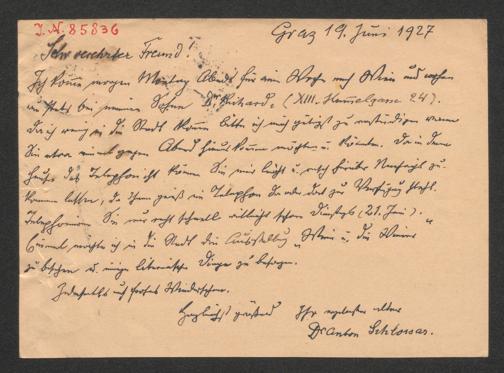 I.N. 85836
Graz 19. Juni 1927
Sehr verehrter Freund!
Ich komme morgen Montag Abends für eine Woche nach Wien und wohne
bei meinem Sohne Dr. Richard, (XIII. 24).
Da ich wenig in die Stadt komme bitte ich mich gütigst zu verständigen wann
Sie etwa einmal gegen Abend kommen möchten u. könnten. Da in dem
Hause das Telephon ist können Sie mir leicht u. rasch
lassen, da Ihnen gewiß ein Telephon zur Verfügung steht.
Telephonieren Sie nur recht schnell vielleicht schon Dienstag (21. Juni).
Einmal möchte ich in die Stadt die Ausstellung "Wien u. die Wiener"
zu besehen u. einige literarische Dinge zu besorgen.
Jedenfalls auf frohes Wiedersehen.
Herzlichst grüßend Ihr ergebener alter
Dr Anton Schlossar.